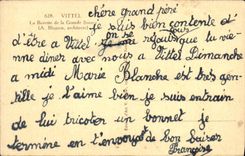 628. VITTEL
La Buvette de la Grande Source
(A. Bluysen, architecte)
chère grand père
je suis bien contente d'
être a Vittel on se réjouit que tu vienne
dîner avec nous a Vittel Dimanche
a midi Marie Blanche est très gen
tille je t'aime bien je suis entrain
de lui tricoter un bonnet je
termine en t'envoyant de bon baiser
Françoise